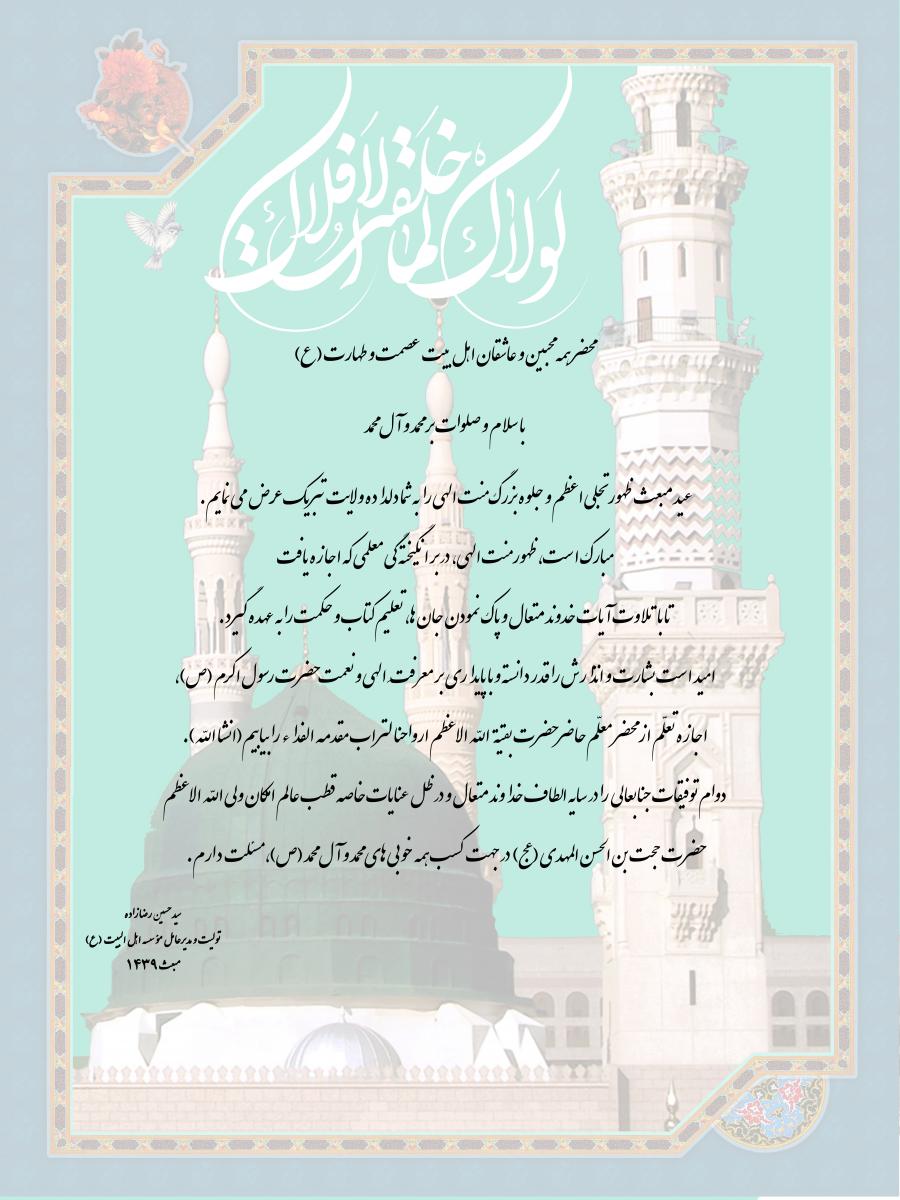 لولاک لما خلقت الافلاک
محضر همه محبین و عاشقان اهل بیت عصمت و طهارت (ع)
با سلام و صلوات بر محمد و آل محمد
عید مبعث ظهور تجلی اعظم و جلوه بزرگ منت الهی را به شما دلداده ولایت تبریک عرض می نمایم.
مبارک است، ظهور منت الهی، در برانگیختگی معلمی که اجازه یافت
تا با تلاوت آیات خدوند متعال و پاک نمودن جان ها، تعلیم کتاب و حکمت را به عهده گیرد.
امید است بشارت و انذارش را قدر دانسته و با پایداری بر معرفت الهی و نعمت حضرت رسول اکرم (ص)،
اجازه تعلّم از محضر معلّم حاضر حضرت بقیة الله الاعظم ارواحنا لتراب مقدمه الفداء را بیابیم (انشاالله).
دوام توفیقات جنابعالی را در سایه الطاف خداوند متعال و در ظل عنایات خاصه قطب عالم امکان ولی الله الاعظم
حضرت حجت بن الحسن المهدی (عج) در جهت کسب همه خوبی های محمد و آل محمد (ص)، مسئلت دارم.
سید حسین رضازاده
تولیت و مدیرعامل مؤسسه اهل البیت (ع)
مبعث ۱۴۳۹